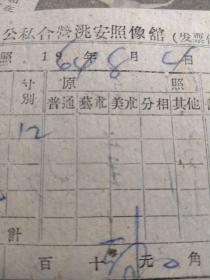 公私合营洮安照像舘（发票
照 1964年8月4日
寸別 原 照
普通 藝朮 美朮 分相 其他
12
計
百十元角